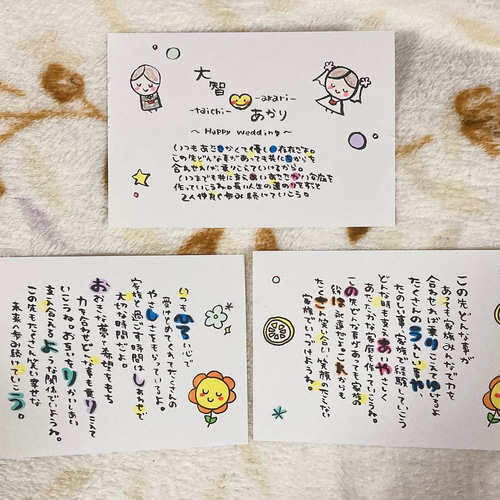 大智
-taichi-
-akari-
あかり
～Happy wedding～
いつもあたたかくて優しい存在だよ。
この先どんな事があっても共に力を
合わせれば乗りこえていけるから。
いつまでも共に支えあいあたたかい家庭を
作っていこうね。長い人生の道のりをずっと
2人仲良く歩み続けていこう。
いつも広い心で
受けとめてくれてたくさんの
やさしさをもらっているよ。
家族と過ごす時間はしあわせで
大切な時間だよ。
おおきな夢と希望をもち
力を合わせどんな事も乗りこえて
いこうね。お互いよりかかりあい
支え合えるような関係でいようね。
この先もたくさん笑い幸せな
未来へ歩み続けていこう。
この先どんな事が
あっても家族みんなで力を
合わせれば乗りこえてゆけるよ
たくさんのうれしい事や、
たのしい事を家族で経験していこう
どんな時も支えあやさしく
あったかな家庭を作っていこうね。
この先どんな事があっても家族の
絆は永遠だよ。これからも
たくさん笑い合い笑顔のたえない
家族でいつづけようね。